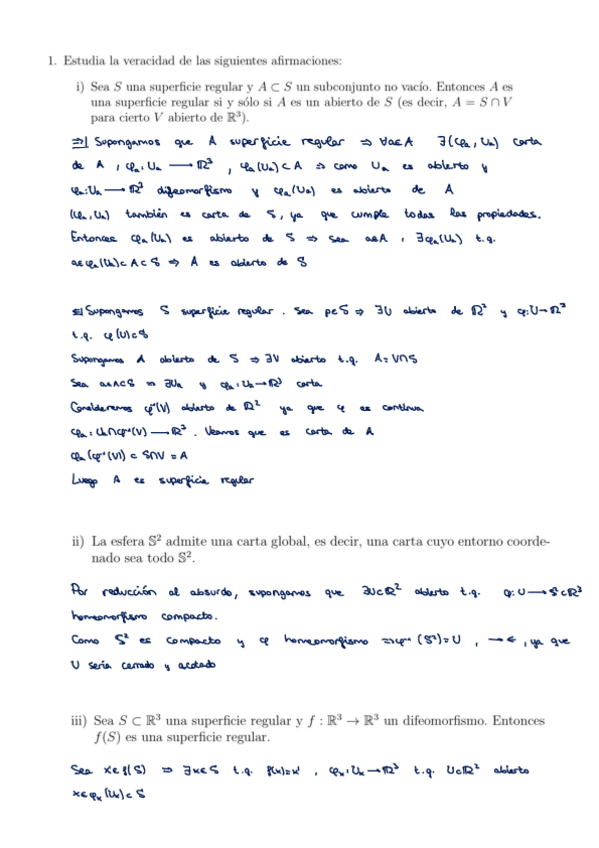 1. Estudia la veracidad de las siguientes afirmaciones:
i) Sea S una superficie regular y A ⊂ S un subconjunto no vacío. Entonces A es
una superficie regular si y sólo si A es un abierto de S (es decir, A = S ∩ V
para cierto V abierto de ℝ³).
⇒| Supongamos que A superficie regular ⇒ ∀a∈A ∃(φₐ, Uₐ) carta
de A, φₐ: Uₐ ⟶ ℝ³, φₐ(Uₐ) ⊂ A ⇒ como Uₐ es abierto y
φₐ: Uₐ ⟶ ℝ³ difeomorfismo y φₐ(Uₐ) es abierto de A
(φₐ, Uₐ) también es carta de S, ya que cumple todas las propiedades.
Entonces φₐ(Uₐ) es abierto de S ⇒ sea a∈A, ∃φₐ(Uₐ) t.q.
a∈φₐ(Uₐ) ⊂ A ⊂ S ⇒ A es abierto de S
⇐| Supongamos S superficie regular. Sea p∈S ⇒ ∃U abierto de ℝ² y φ: U ⟶ ℝ³
t.q. φ(U) ⊂ S
Supongamos A abierto de S ⇒ ∃V abierto t.q. A = V∩S
Sea a∈A⊂S ⇒ ∃Uₐ y φₐ: Uₐ ⟶ ℝ³ carta
Consideremos φ⁻¹(V) abierto de ℝ² ya que φ es continua
φₐ: Uₐ∩φ⁻¹(V) ⟶ ℝ³. Veamos que es carta de A
φₐ(φ⁻¹(V)) ⊂ S∩V = A
Luego A es superficie regular
ii) La esfera 𝕊² admite una carta global, es decir, una carta cuyo entorno coorde-
nado sea todo 𝕊².
Por reducción al absurdo, supongamos que ∃U⊂ℝ² abierto t.q. φ: U ⟶ S²⊂ℝ³
homeomorfismo compacto.
Como S² es compacto y φ homeomorfismo ⇒ φ⁻¹(S²) = U, →←, ya que
U sería cerrado y acotado
iii) Sea S ⊂ ℝ³ una superficie regular y f : ℝ³ → ℝ³ un difeomorfismo. Entonces
f(S) es una superficie regular.
Sea x'∈f(S) ⇒ ∃x∈S t.q. f(x)=x', φₓ: Uₓ ⟶ ℝ³ t.q. U⊂ℝ² abierto
x∈φₓ(Uₓ) ⊂ S